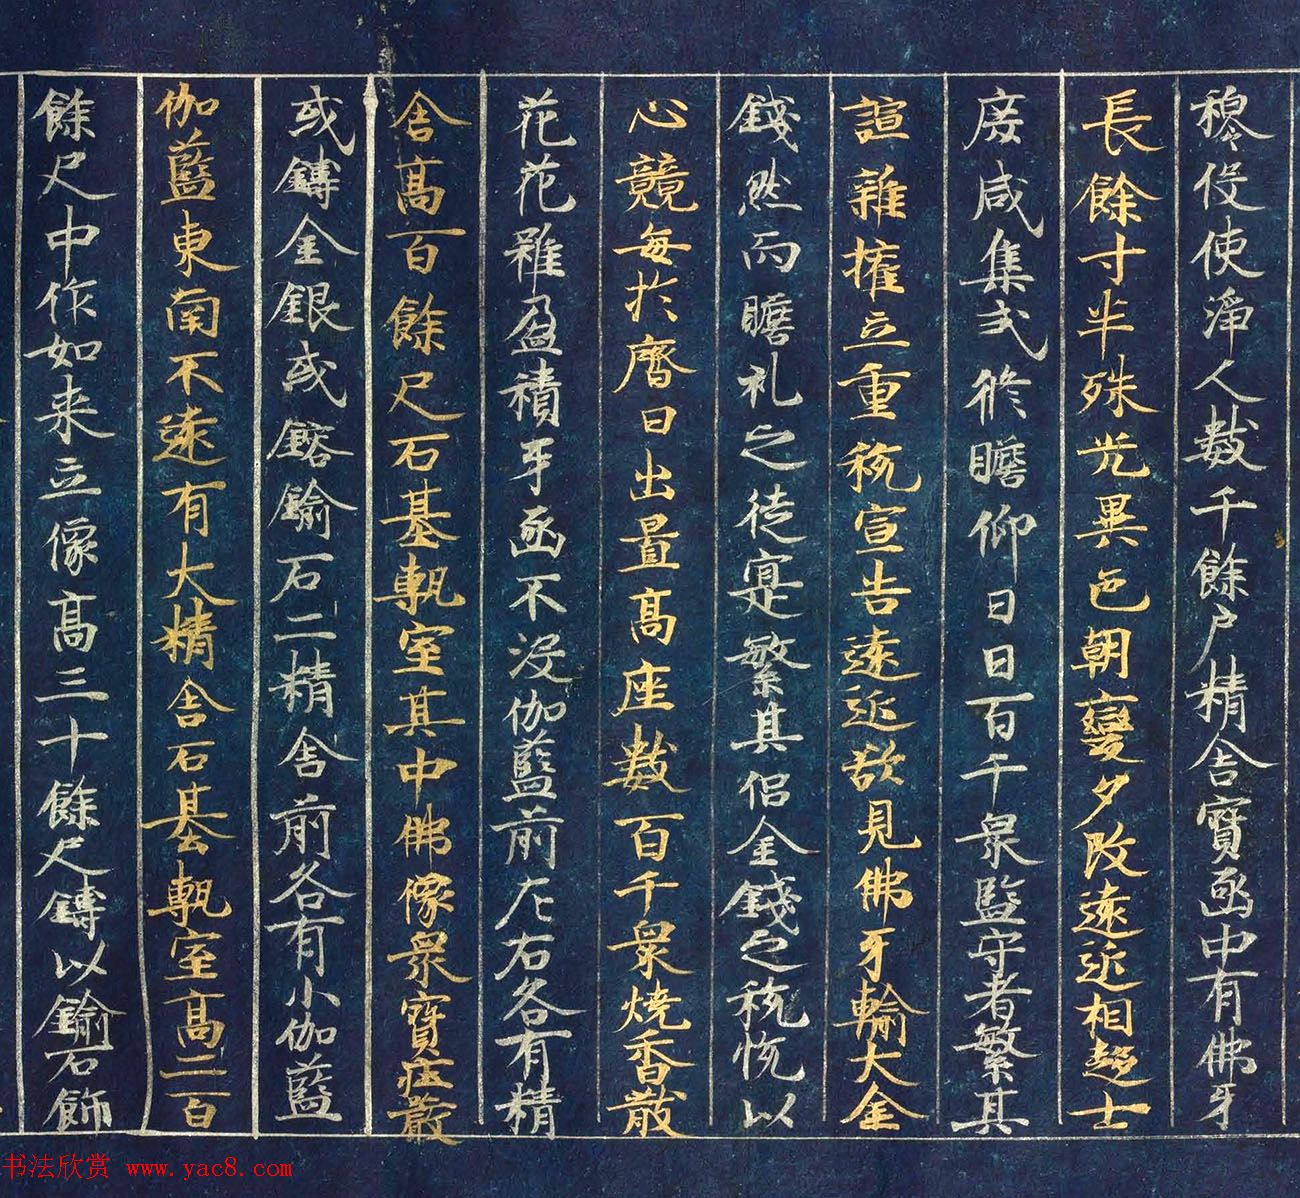 穆役使淨人數千餘户精舍寶函中有佛牙
長餘寸半殊光異色朝變夕改遠近相趍士
庶咸集式修瞻仰日日百千衆監守者繁其
諠雜權立重稅宣告遠近欲見佛牙輸大金
錢然而瞻礼之徒寔繁其侣金錢之稅悅以
心競每於齋日出置髙座數百千衆燒香散
花花雖盈積牙函不没伽藍前左右各有精
舍髙百餘尺石基甎室其中佛像衆寶莊嚴
或鑄金銀或鎔鍮石二精舍前各有小伽藍
伽藍東南不遠有大精舍石基甎室髙二百
餘尺中作如来立像髙三十餘尺鑄以鍮石飾
书法欣赏 www.yac8.com